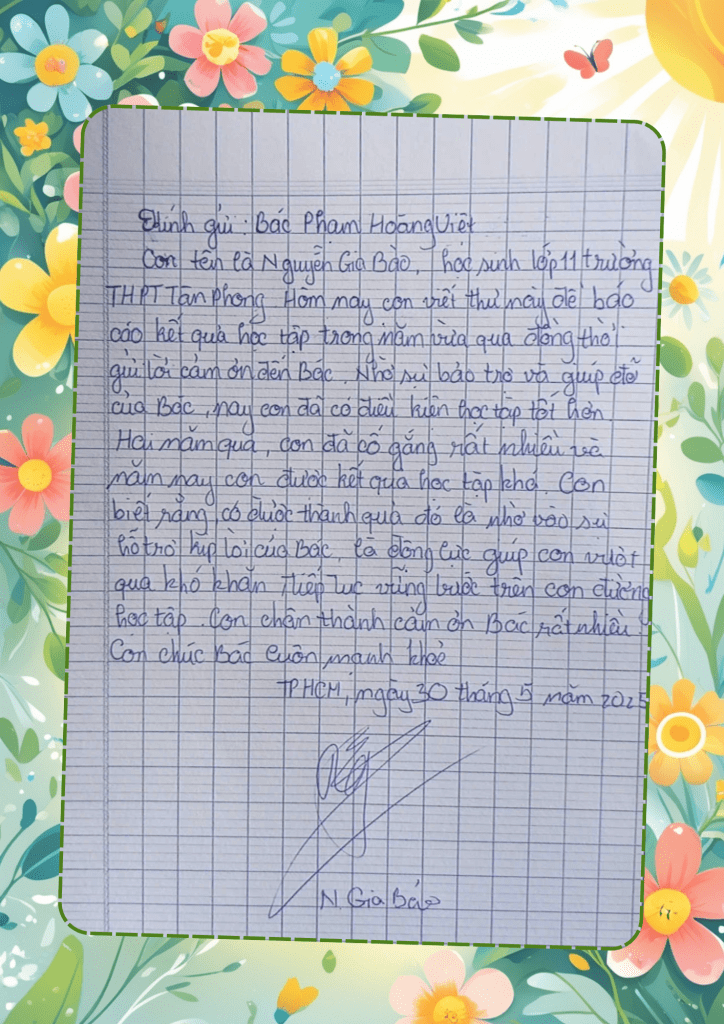 Kính gửi : Bác Phạm Hoàng Việt
Con tên là Nguyễn Gia Bảo, học sinh lớp 11 trường
THPT Tân Phong Hôm nay con viết thư này để báo
cáo kết quả học tập trong năm vừa qua đồng thời
gửi lời cảm ơn đến Bác. Nhờ sự bảo trợ và giúp đỡ
của Bác, nay con đã có điều kiện học tập tốt hơn
Hai năm qua, con đã cố gắng rất nhiều và
năm nay con được kết quả học tập khá. Con
biết rằng, có được thành quả đó là nhờ vào sự
hỗ trợ kịp lời của Bác, là động lực giúp con vượt
qua khó khăn tiếp tục vững bước trên con đường
học tập. Con chân thành cảm ơn Bác rất nhiều.
Con chúc Bác luôn mạnh khoẻ
TPHCM, ngày 30 tháng 5 năm 2025
N. Gia Bảo